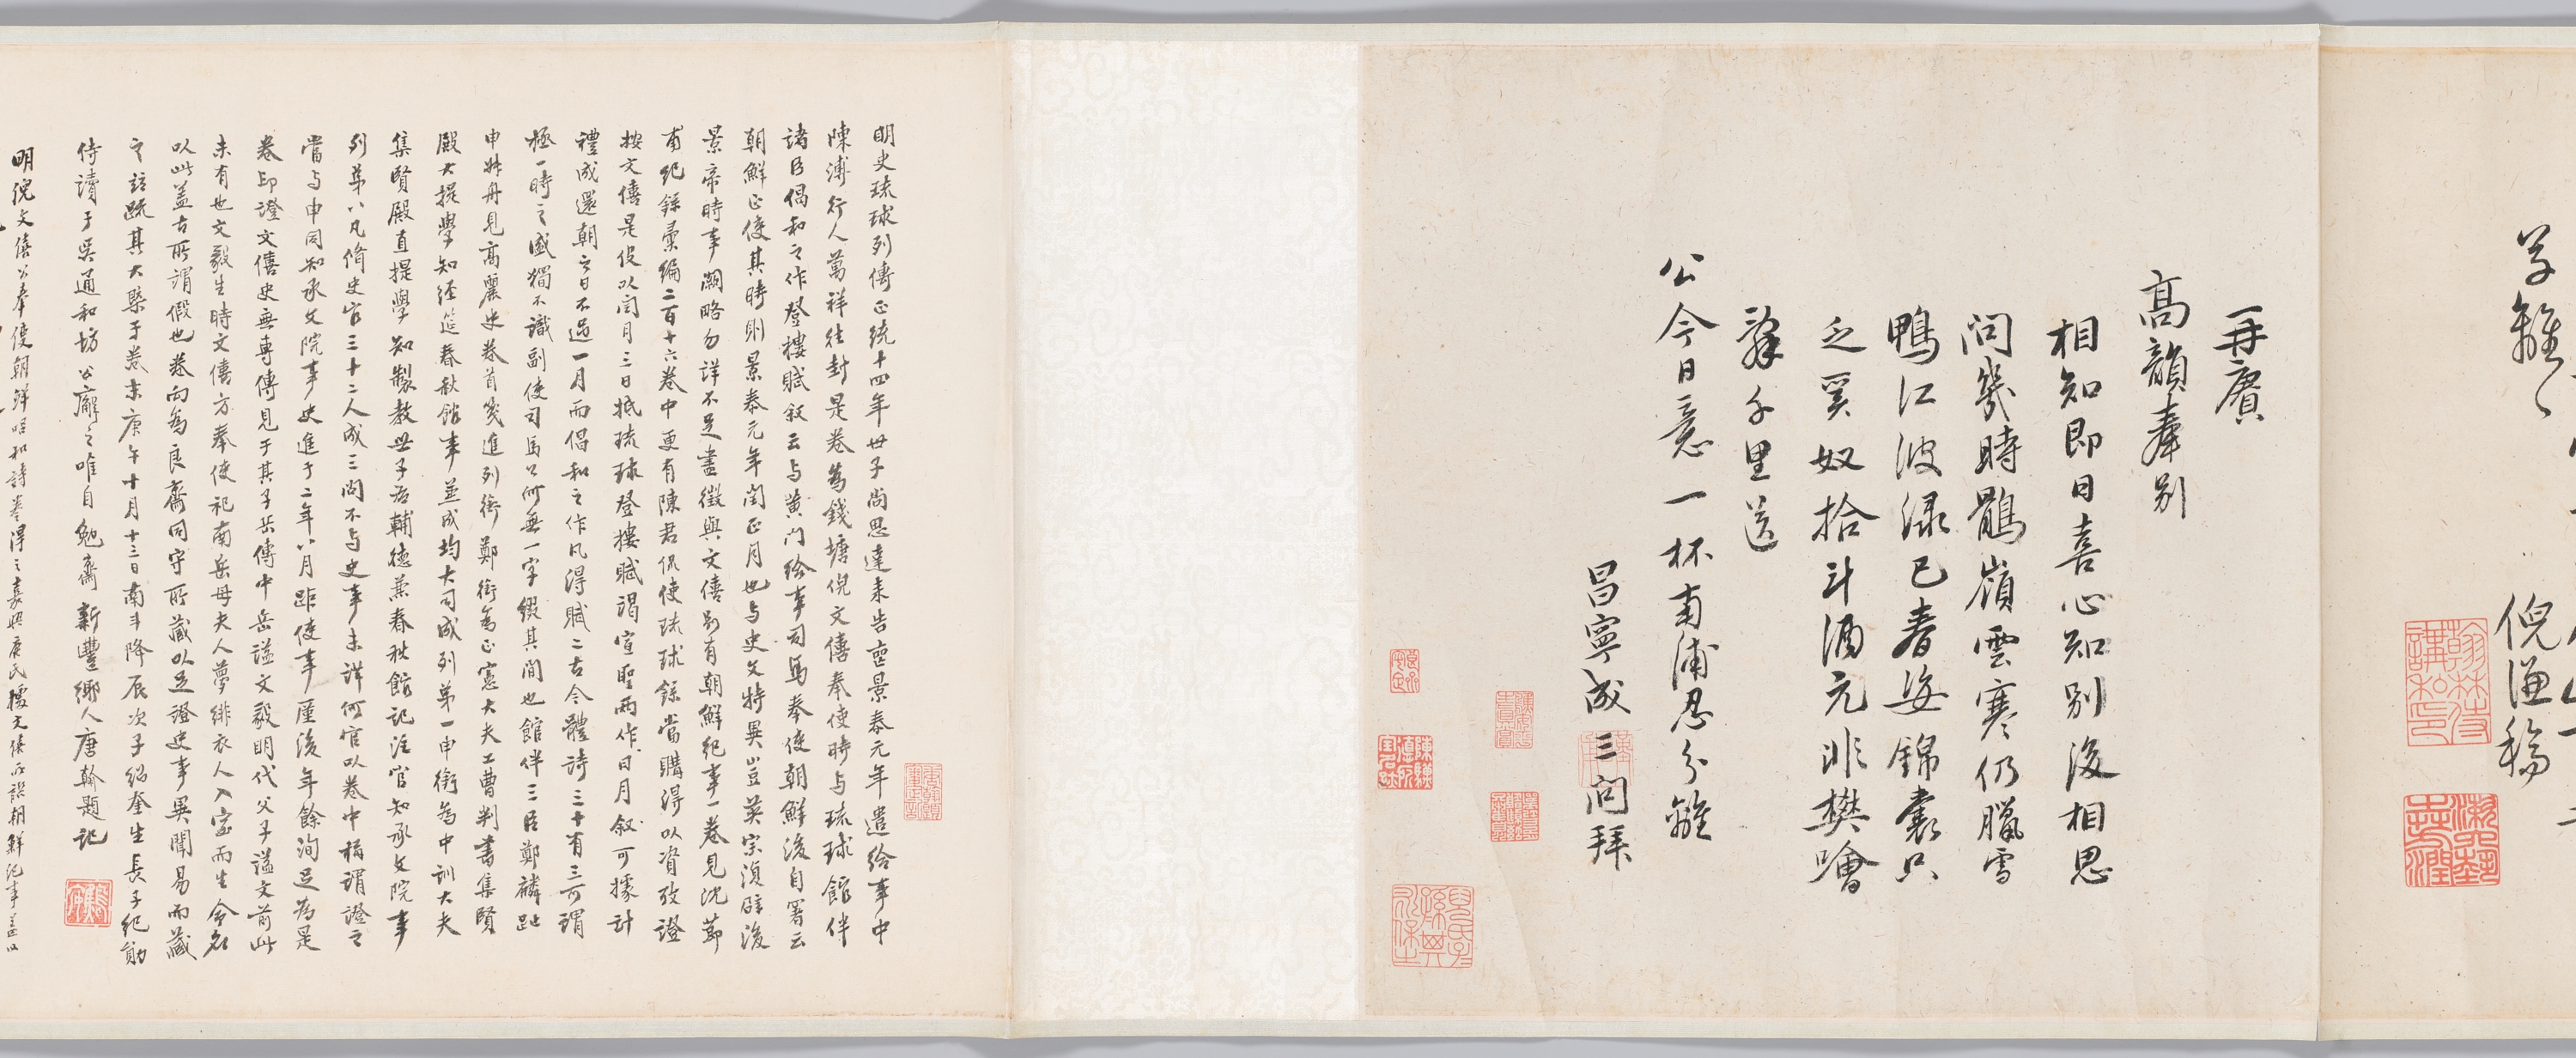 草離〻
倪謙稿
再賡
高韻奉别
相知即日喜心知别後相思
問幾時鶻嶺雲寒仍臘雪
鴨江波渌已春姿錦囊只
乏奚奴拾斗酒元非樊噲
辭千里送
公今日意一杯南浦忍分離
昌寧成三問拜
明史琉球列傳正統十四年世子尚思達來告喪景泰元年遣給事中
陳溥行人萬祥往封是卷爲錢塘倪文僖奉使時与琉球館伴
諸臣倡和之作登樓賦叙云与黄門給事司馬奉使朝鮮後自署云
朝鮮正使其時則景泰元年閏正月也与史文特異豈英宗湏辟後
景帝時事闕略勿詳不足盡徵與文僖别有朝鮮紀事一卷見沈節
甫紀錄彙編二百十六卷中更有陳君侃使琉球錄當購得以資攷證
按文僖是役以閏月三日抵琉球登樓賦謁宣聖兩作日月叙可據計
禮成還朝之日不過一月而倡和之作凡得賦二古今體詩三十有三可謂
極一時之盛獨不識副使司馬公何無一字綴其間也館伴三臣鄭麟趾
申叔舟見高麗史卷首箋進列銜鄭銜爲正憲大夫工曹判書集賢
殿大提學知經筵春秋館事兼成均大司成列第一申銜爲中訓大夫
集賢殿直提學知製教世子右輔德兼春秋館記注官知承文院事
列第八凡脩史官三十二人成三問不与史事未詳何官以卷中稱謂證之
當与申同知承文院事史進于二年八月距使事厪後年餘洵足爲是
卷印證文僖史無專傳見于其子岳傳中岳謚文毅明代父子謚文前此
未有也文毅生時文僖方奉使祀南岳母夫人夢緋衣人入室而生命名
以此盖古所謂假也卷向爲良齋同守所藏以足證史事異聞易而藏
之話疏其大槩于卷末庚午十月十三日南斗降辰次子紹奎生長子紀勛
侍讀于吳通和坊公廨之唯自勉齋新豐鄉人唐翰題記
明倪文僖公奉使朝鮮唱和詩卷得之嘉興唐氏據文僖所譔朝鮮紀事蓋以